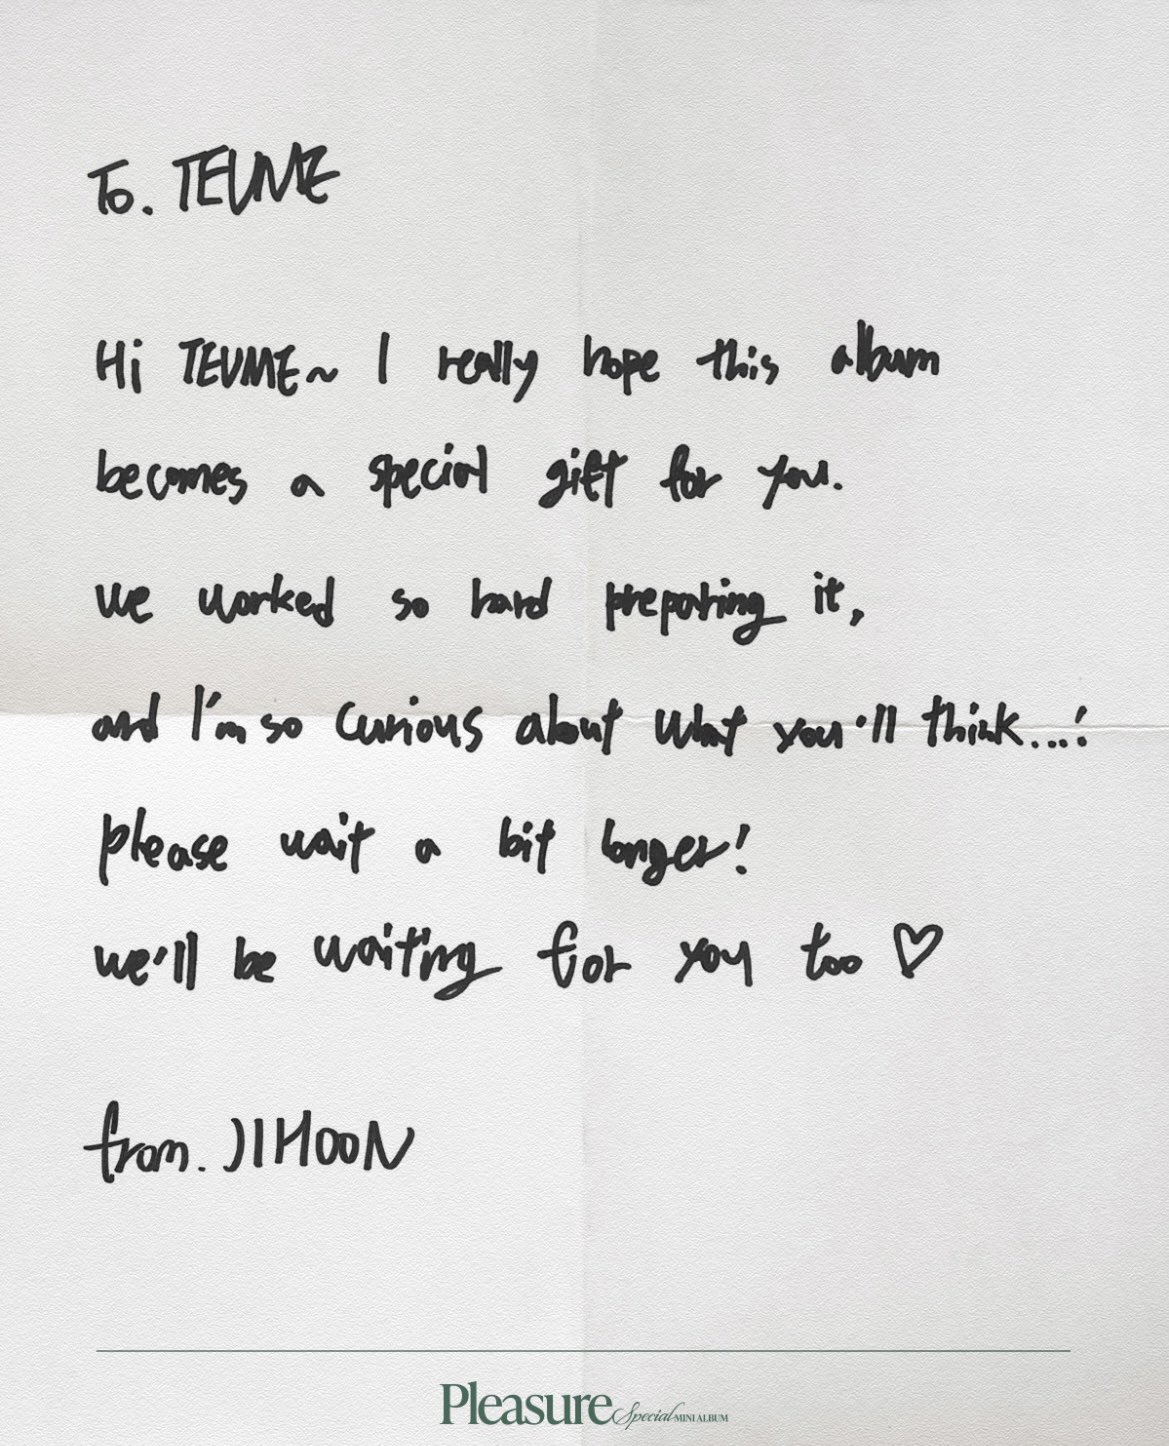 To. TEUME
Hi TEUME~ I really hope this album
becomes a special gift for you.
we worked so hard preparing it,
and I'm so curious about what you'll think...!
please wait a bit longer!
we'll be waiting for you too ♡
from. JIHOON
Pleasure Special MINI ALBUM